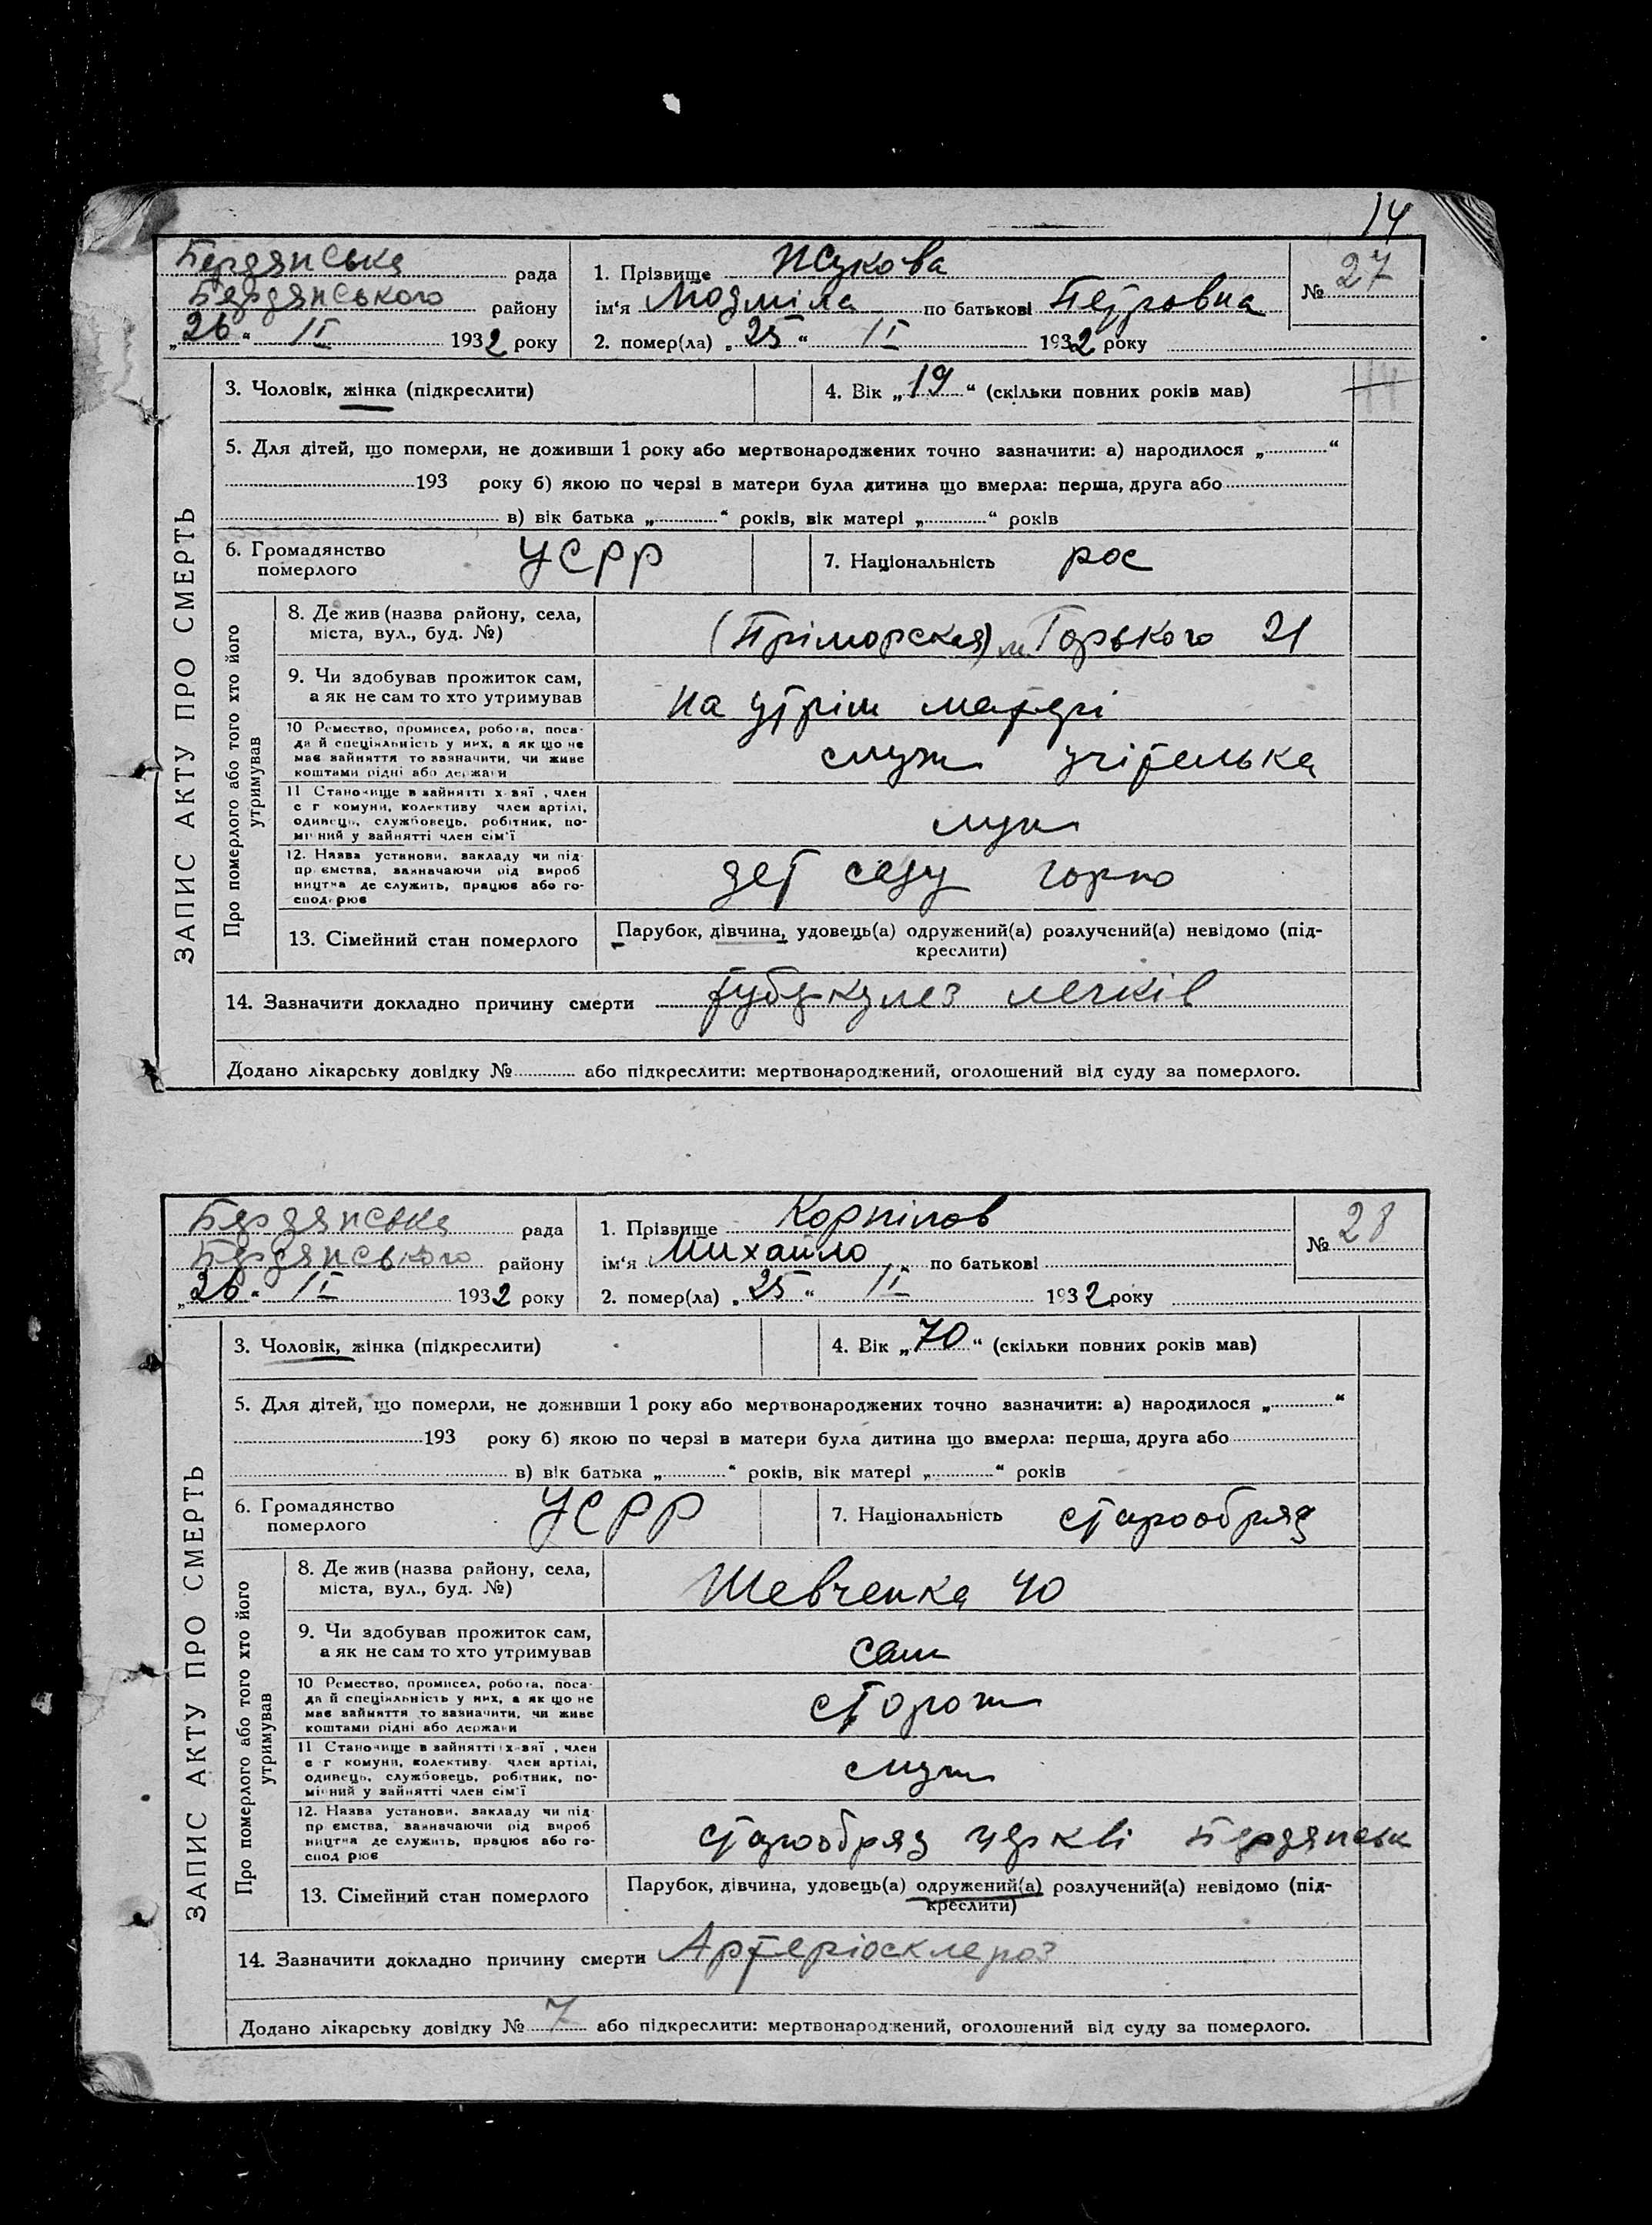 14
Бердянська рада
Бердянського району
„26“ II 1932 року
1. Прізвище Жукова
ім'я Людміла по батькові Петровна
2. помер(ла) „25“ II 1932 року
№ 27
ЗАПИС АКТУ ПРО СМЕРТЬ
3. Чоловік, жінка (підкреслити)
4. Вік „19“ (скільки повних років мав)
5. Для дітей, що померли, не доживши 1 року або мертвонароджених точно зазначити: а) народилося „ “
193 року б) якою по черзі в матери була дитина що вмерла: перша, друга або
в) вік батька „ “ років, вік матері „ “ років
6. Громадянство
померлого
УСРР
7. Національність рос
Про померлого або того хто його
утримував
8. Де жив (назва району, села,
міста, вул., буд. №)
(Пріморская) м. Горького 21
9. Чи здобував прожиток сам,
а як не сам то хто утримував
на утрім матері
10 Ремество, промисел, робота, поса-
да й спеціяльність у них, а як що не
має зайняття то зазначити, чи живе
коштами рідні або держави
служ учітелька
11 Становище в зайнятті х-зяї , член
с г комуни, колективу член артілі,
одинець, службовець, робітник, по-
мічний у зайнятті член сім'ї
служ
12. Назва установи, закладу чи під-
пр ємства, зазначаючи рід вироб
ництва де служить, працює або го-
сподарює
дет саду горно
13. Сімейний стан померлого
Парубок, дівчина, удовець(а) одружений(а) розлучений(а) невідомо (під-
креслити)
14. Зазначити докладно причину смерти туберкулез легків
Додано лікарську довідку № або підкреслити: мертвонароджений, оголошений від суду за померлого.
Бердянська рада
Бердянського району
„26“ II 1932 року
1. Прізвище Корнілов
ім'я Михайло по батькові
2. помер(ла) „25“ II 1932 року
№ 28
ЗАПИС АКТУ ПРО СМЕРТЬ
3. Чоловік, жінка (підкреслити)
4. Вік „70“ (скільки повних років мав)
5. Для дітей, що померли, не доживши 1 року або мертвонароджених точно зазначити: а) народилося „ “
193 року б) якою по черзі в матери була дитина що вмерла: перша, друга або
в) вік батька „ “ років, вік матері „ “ років
6. Громадянство
померлого
УСРР
7. Національність старообряд
Про померлого або того хто його
утримував
8. Де жив (назва району, села,
міста, вул., буд. №)
Шевченка 40
9. Чи здобував прожиток сам,
а як не сам то хто утримував
сам
10 Ремество, промисел, робота, поса-
да й спеціяльність у них, а як що не
має зайняття то зазначити, чи живе
коштами рідні або держави
сторож
11 Становище в зайнятті х-зяї , член
с г комуни, колективу член артілі,
одинець, службовець, робітник, по-
мічний у зайнятті член сім'ї
служ
12. Назва установи, закладу чи під-
пр ємства, зазначаючи рід вироб
ництва де служить, працює або го-
спод рює
старообряд церкві Бердянськ
13. Сімейний стан померлого
Парубок, дівчина, удовець(а) одружений(а) розлучений(а) невідомо (під-
креслити)
14. Зазначити докладно причину смерти Артеріосклероз
Додано лікарську довідку № 7 або підкреслити: мертвонароджений, оголошений від суду за померлого.